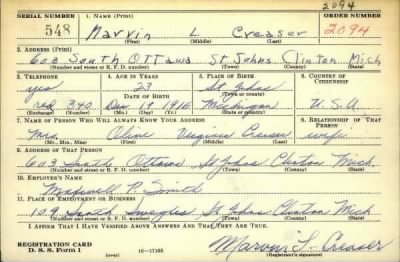 2094
SERIAL NUMBER 1. NAME (Print) ORDER NUMBER
548 Marvin L. Creaser 2094
(First) (Middle) (Last)
2. ADDRESS (Print)
603 South Ottawa St Johns Clinton Mich
(Number and street or R. F. D. number) (Town) (County) (State)
3. TELEPHONE 4. AGE IN YEARS 5. PLACE OF BIRTH 6. COUNTRY OF CITIZENSHIP
yes 23 St Johns
DATE OF BIRTH (Town or county)
red 340 Dec 19 1916 Michigan U.S.A
(Exchange) (Number) (Mo.) (Day) (Yr.) (State or country)
7. NAME OF PERSON WHO WILL ALWAYS KNOW YOUR ADDRESS 8. RELATIONSHIP OF THAT PERSON
Mrs. Olive Virginia Creaser wife
(Mr., Mrs., Miss) (First) (Middle) (Last)
9. ADDRESS OF THAT PERSON
603 South Ottawa St Johns Clinton Mich.
(Number and street or R. F. D. number) (Town) (County) (State)
10. EMPLOYER'S NAME
Maxwell P. Smith
11. PLACE OF EMPLOYMENT OR BUSINESS
109 South St Johns Clinton Mich
(Number and street or R. F. D. number) (Town) (County) (State)
I AFFIRM THAT I HAVE VERIFIED ABOVE ANSWERS AND THAT THEY ARE TRUE.
REGISTRATION CARD
D. S. S. Form 1 (over) 16-17105 Marvin L. Creaser
(Registrant's signature)